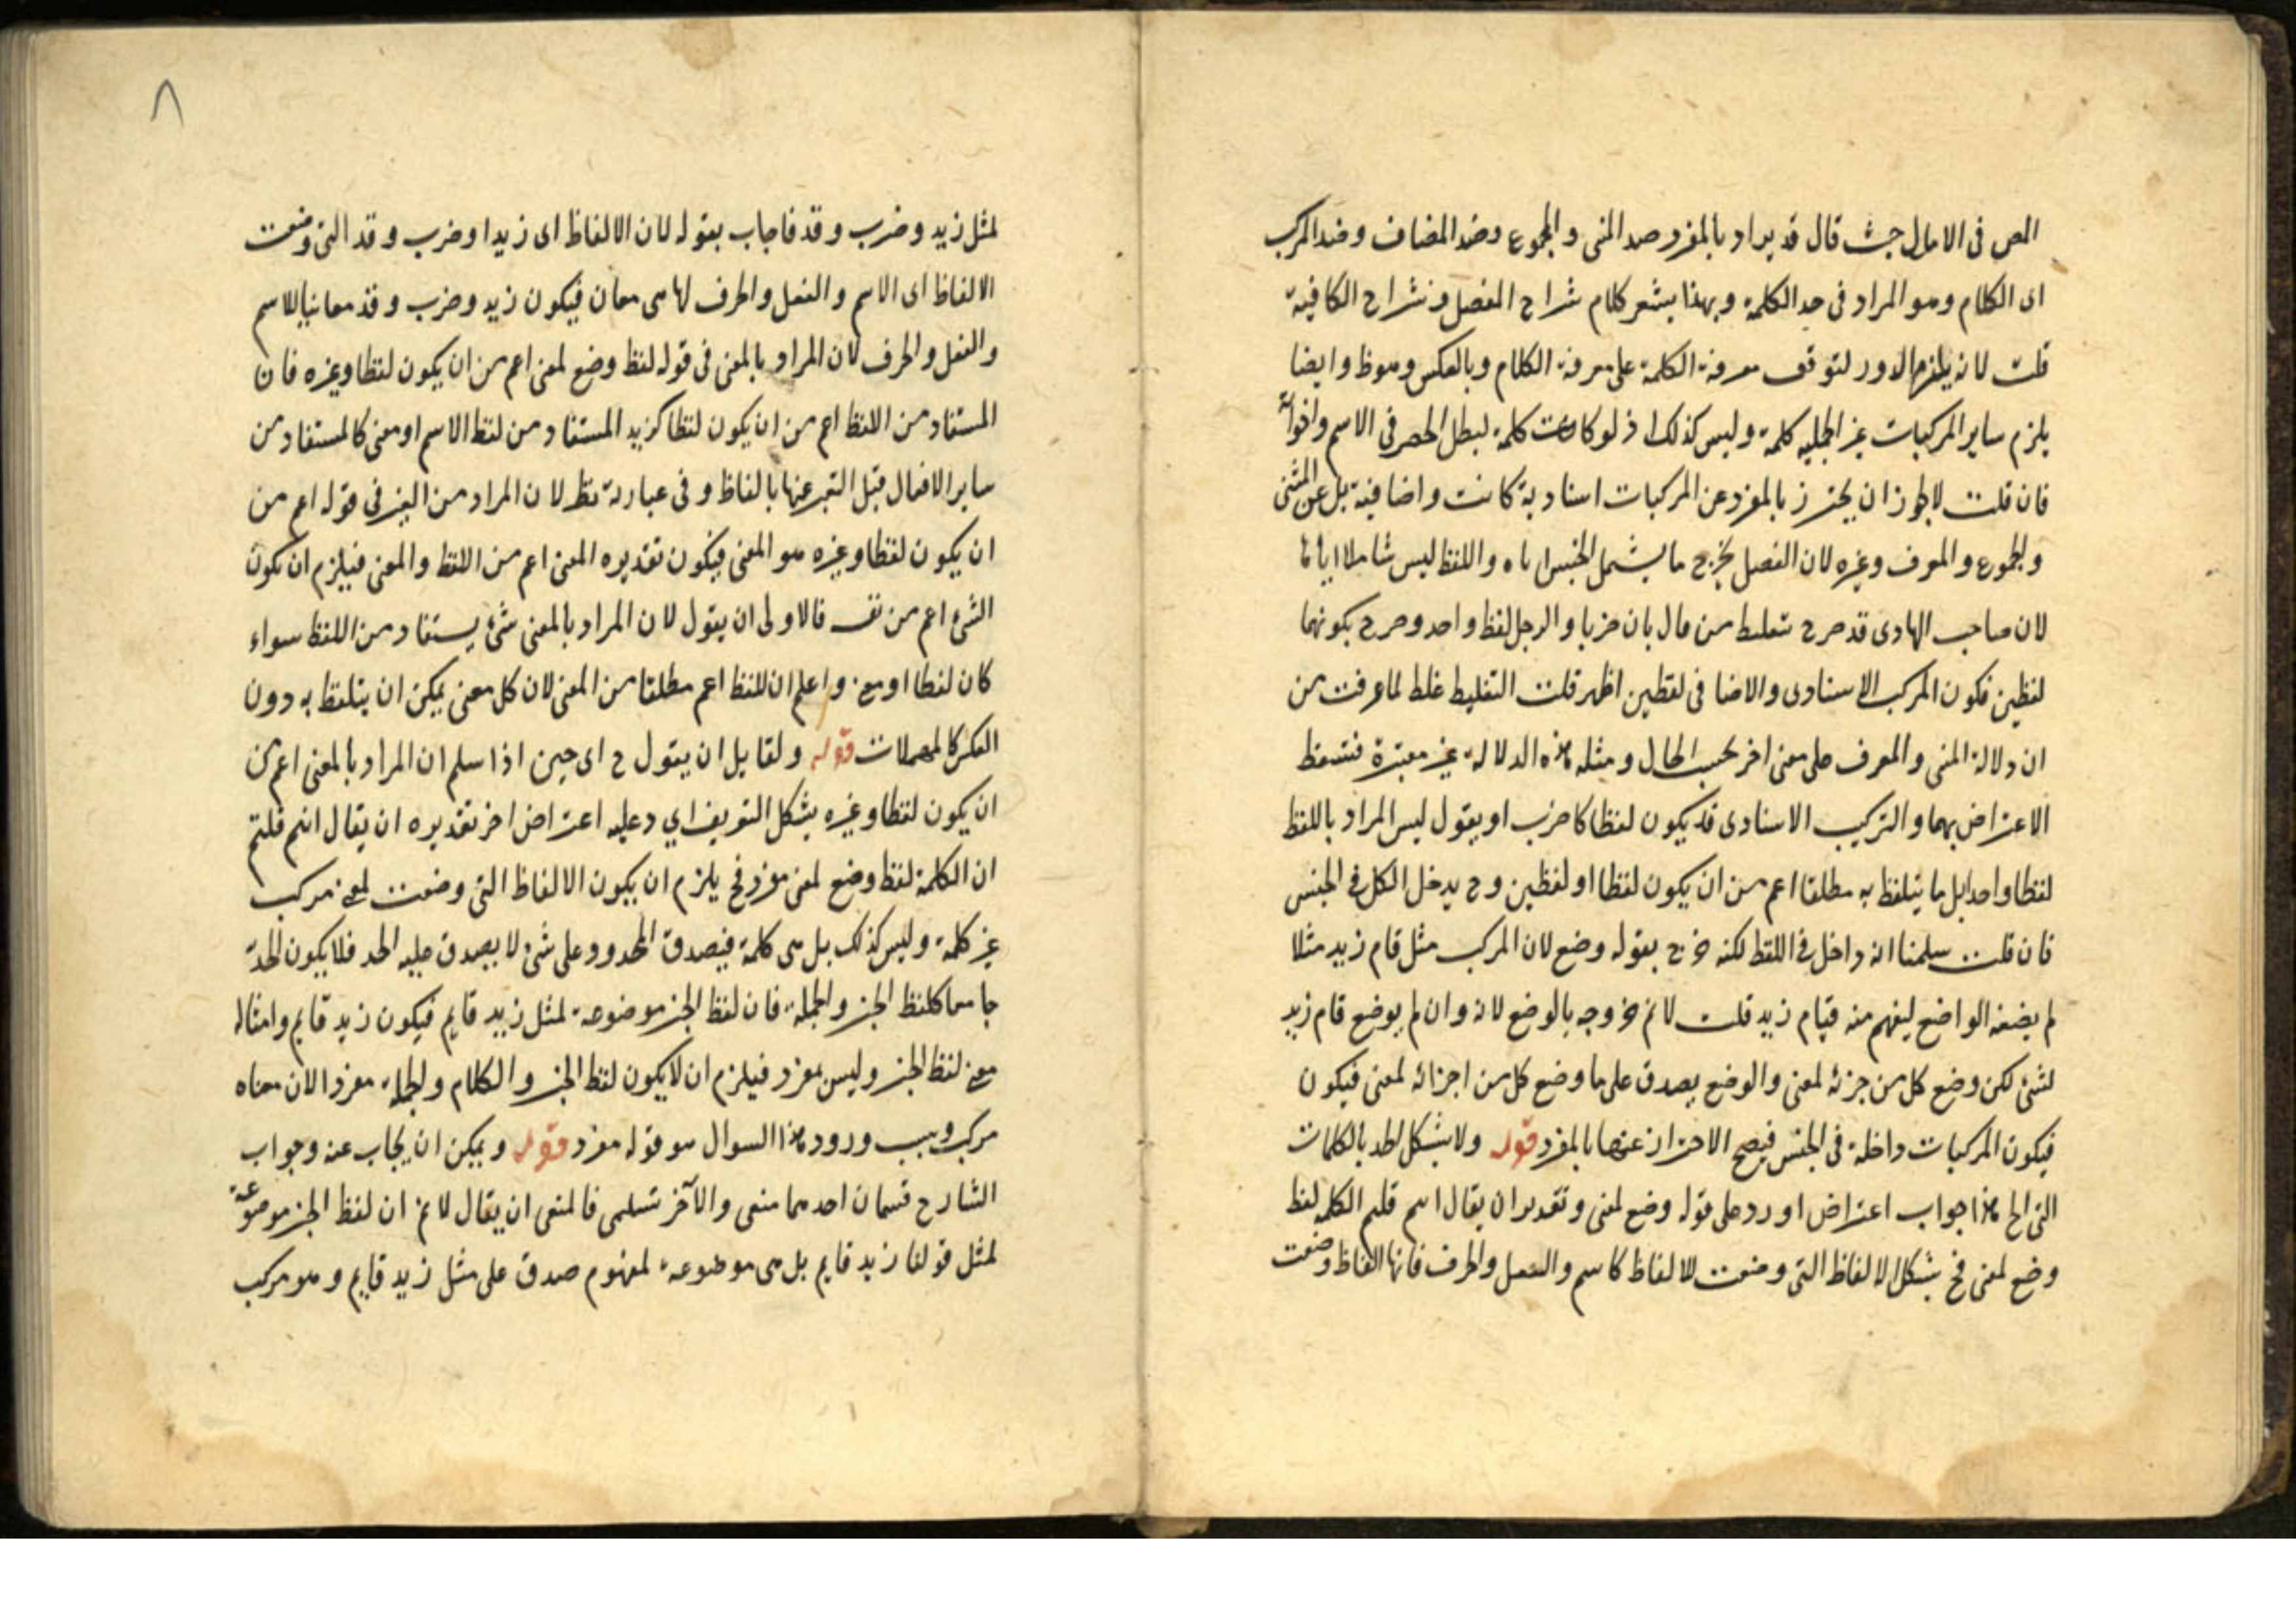 المص فى الامالى حيث قال قد يراد بالمفرد ضد المثنى والمجموع وضد المضاف وضد المركب
اى الكلام وهو المراد فى حد الكلمة وبهذا يشعر كلام شراح المفصل وشراح الكافية
قلت لانه يلزم الدور لتوقف معرفة الكلمة على معرفة الكلام وبالعكس وهو ظ وايضا
يلزم ساير المركبات غير الجملية كلمة وليس كذلك اذ لو كانت كلمة لبطل الحصر فى الاسم واخواته
فان قلت لا يجوز ان يحترز بالمفرد عن المركبات اسنادية كانت واضافية بل عن المثنى
والمجموع والمعرف وغيره لان الفصل يخرج ما يشمل الجنس اياه واللفظ ليس شاملا اياها
لان صاحب الهادى قد صرح بتغليط من قال بان ضربا والرجل لفظ واحد وصرح بكونهما
لفظين فكون المركب الاسنادى والاضافى لفظين اظهر قلت التغليط غلط لما عرفت من
ان دلالة المثنى والمعرف على معنى اخر بحسب الحال ومثله هذه الدلالة غير معتبرة فتسقط
الاعتراض بهما والتركيب الاسنادى قد يكون لفظا كاضرب او يقول ليس المراد باللفظ
لفظا واحدا بل ما يتلفظ به مطلقا اعم من ان يكون لفظا او لفظين وح يدخل الكل فى الجنس
فان قلت سلمنا انه داخل فى اللفظ لكنه خرج بقوله وضع لان المركب مثل قام زيد مثلا
لم يضعه الواضع ليفهم منه قيام زيد قلت لانم خروجه بالوضع لانه وان لم يوضع قام زيد
لشئ لكن وضع كل من جزئه لمعنى والوضع يصدق على ما وضع كل من اجزائه لمعنى فيكون
فيكون المركبات داخلة فى الجنس فيصح الاحتراز عنها بالمفرد قوله ولا يشكل الحد بالكلمات
التى الخ هذا جواب اعتراض اورد على قوله وضع لمعنى وتقديره ان يقال اسم قلتم الكلمة لفظ
وضع لمعنى فح يشكل الالفاظ التى وضعت للالفاظ كاسم والفعل والحرف فانها الفاظ وضعت
لمثل زيد وضرب وقد فاجاب بقوله لان الالفاظ اى زيدا وضرب وقد التى وضعت
الالفاظ اى الاسم والفعل والحرف لها هى معان فيكون زيد وضرب وقد معانيا للاسم
والفعل والحرف لان المراد بالمعنى فى قوله لفظ وضع لمعنى اعم من ان يكون لفظا وغيره فان
المستفاد من اللفظ اعم من ان يكون لفظا كزيد المستفاد من لفظ الاسم او معنى كالمستفاد من
ساير الافعال قبل التعبير عنها بالفاظ وفى عبارته نظر لان المراد من الغير فى قوله اعم من
ان يكون لفظا وغيره هو المعنى فيكون تقديره المعنى اعم من اللفظ والمعنى فيلزم ان يكون
الشئ اعم من نفسه فالاولى ان يقول لان المراد بالمعنى شئ يستفاد من اللفظ سواء
كان لفظا او معنى واعلم ان اللفظ اعم مطلقا من المعنى لان كل معنى يمكن ان يتلفظ به دون
العكس كالمهملات قوله ولقايل ان يقول ح اى حين اذا سلم ان المراد بالمعنى اعم من
ان يكون لفظا وغيره يشكل التعريف اي دعليه اعتراض اخر تقديره ان يقال انتم قلتم
ان الكلمة لفظ وضع لمعنى مفرد فح يلزم ان يكون الالفاظ التى وضعت لمعنى مركب
غير كلمة وليس كذلك بل هى كلمة فيصدق المحدود على شئ لا يصدق عليه الحد فلا يكون الحد
جامعا كلفظ الخبر والجملة فان لفظ الخبر موضوعة لمثل زيد قايم فيكون زيد قايم وامثاله
معنى لفظ الخبر وليس بمفرد فيلزم ان لا يكون لفظ الخبر والكلام والجملة مفردا لان معناه
مركب وسبب ورود هذا السوال هو قوله مفرد قوله ويمكن ان يجاب عنه وجواب
الشارح قسمان احدهما منعى والآخر تسلمى فالمنعى ان يقال لانم ان لفظ الخبر موضوعة
لمثل قولنا زيد قايم بل هى موضوعة لمفهوم صدق على مثل زيد قايم وهو مركب